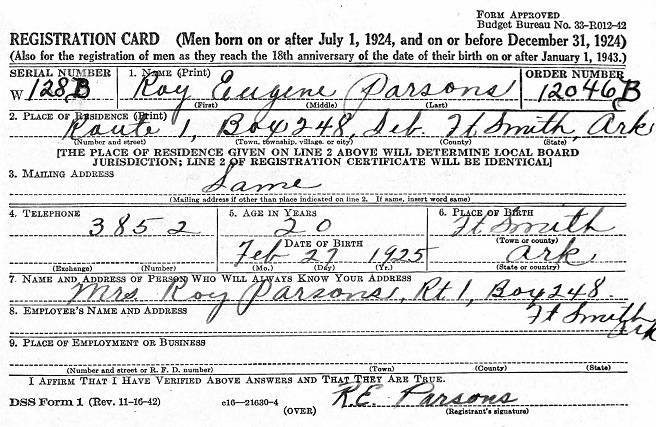 FORM APPROVED
BUDGET BUREAU NO. 33-R012-42
REGISTRATION CARD (Men born on or after July 1, 1924, and on or before December 31, 1924)
(Also for the registration of men as they reach the 18th anniversary of the date of their birth on or after January 1, 1943.)
SERIAL NUMBER 1. NAME (Print) ORDER NUMBER
W 128 B Roy Eugene Parsons 12046 B
(First) (Middle) (Last)
2. PLACE OF RESIDENCE (Print)
Route 1, Box 248, Seb. Ft Smith, Ark
(Number and street) (Town, township, village, or city) (County) (State)
[THE PLACE OF RESIDENCE GIVEN ON LINE 2 ABOVE WILL DETERMINE LOCAL BOARD
JURISDICTION; LINE 2 OF REGISTRATION CERTIFICATE WILL BE IDENTICAL]
3. MAILING ADDRESS
Same
(Mailing address if other than place indicated on line 2. If same, insert word same)
4. TELEPHONE 5. AGE IN YEARS 6. PLACE OF BIRTH
3852 20 Ft Smith
DATE OF BIRTH (Town or county)
Feb 27 1925 Ark
(Exchange) (Number) (Mo.) (Day) (Yr.) (State or country)
7. NAME AND ADDRESS OF PERSON WHO WILL ALWAYS KNOW YOUR ADDRESS
Mrs. Roy Parsons, Rt 1, Box 248
8. EMPLOYER'S NAME AND ADDRESS
Ft Smith
Ark
9. PLACE OF EMPLOYMENT OR BUSINESS
(Number and street or R. F. D. number) (Town) (County) (State)
I AFFIRM THAT I HAVE VERIFIED ABOVE ANSWERS AND THAT THEY ARE TRUE.
R.E. Parsons
DSS Form 1 (Rev. 11-16-42) c16—21630-4 (OVER) (Registrant's signature)